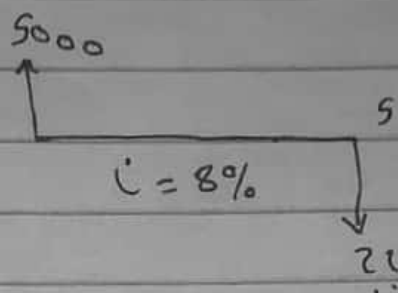 5000
5
i = 8%
??